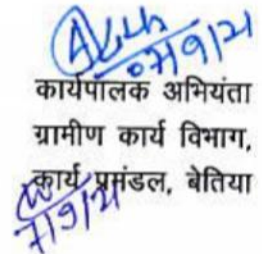 07/9/21
कार्यपालक अभियंता
ग्रामीण कार्य विभाग,
कार्य प्रमंडल, बेतिया
7/9/21